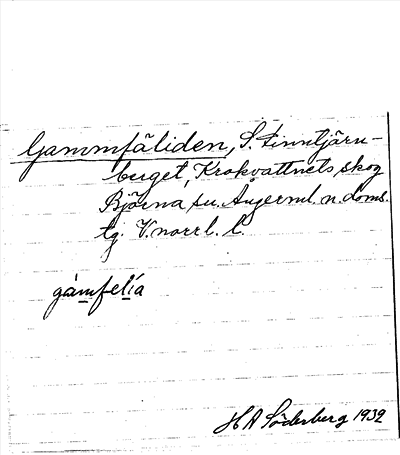 Gammfäliden, S. Finntjärn-
berget, Krokvattnets skog
Björna sn. Ångerml. n. doms.
tg. V.norrl. l.
gàmfelía
H A Söderberg 1932